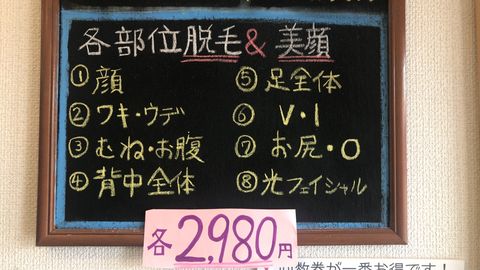 各部位脱毛&美顔
①顔
②ワキ・ウデ
③むね・お腹
④背中全体
⑤足全体
⑥V・I
⑦お尻・O
⑧光フェイシャル
各2,980円
回数券が一番お得です!